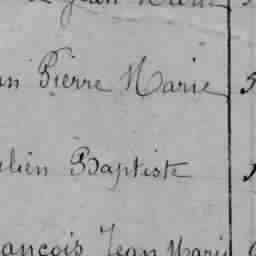 Jean
an Pierre Marie 5
ulien Baptiste
rançois Jean Marie